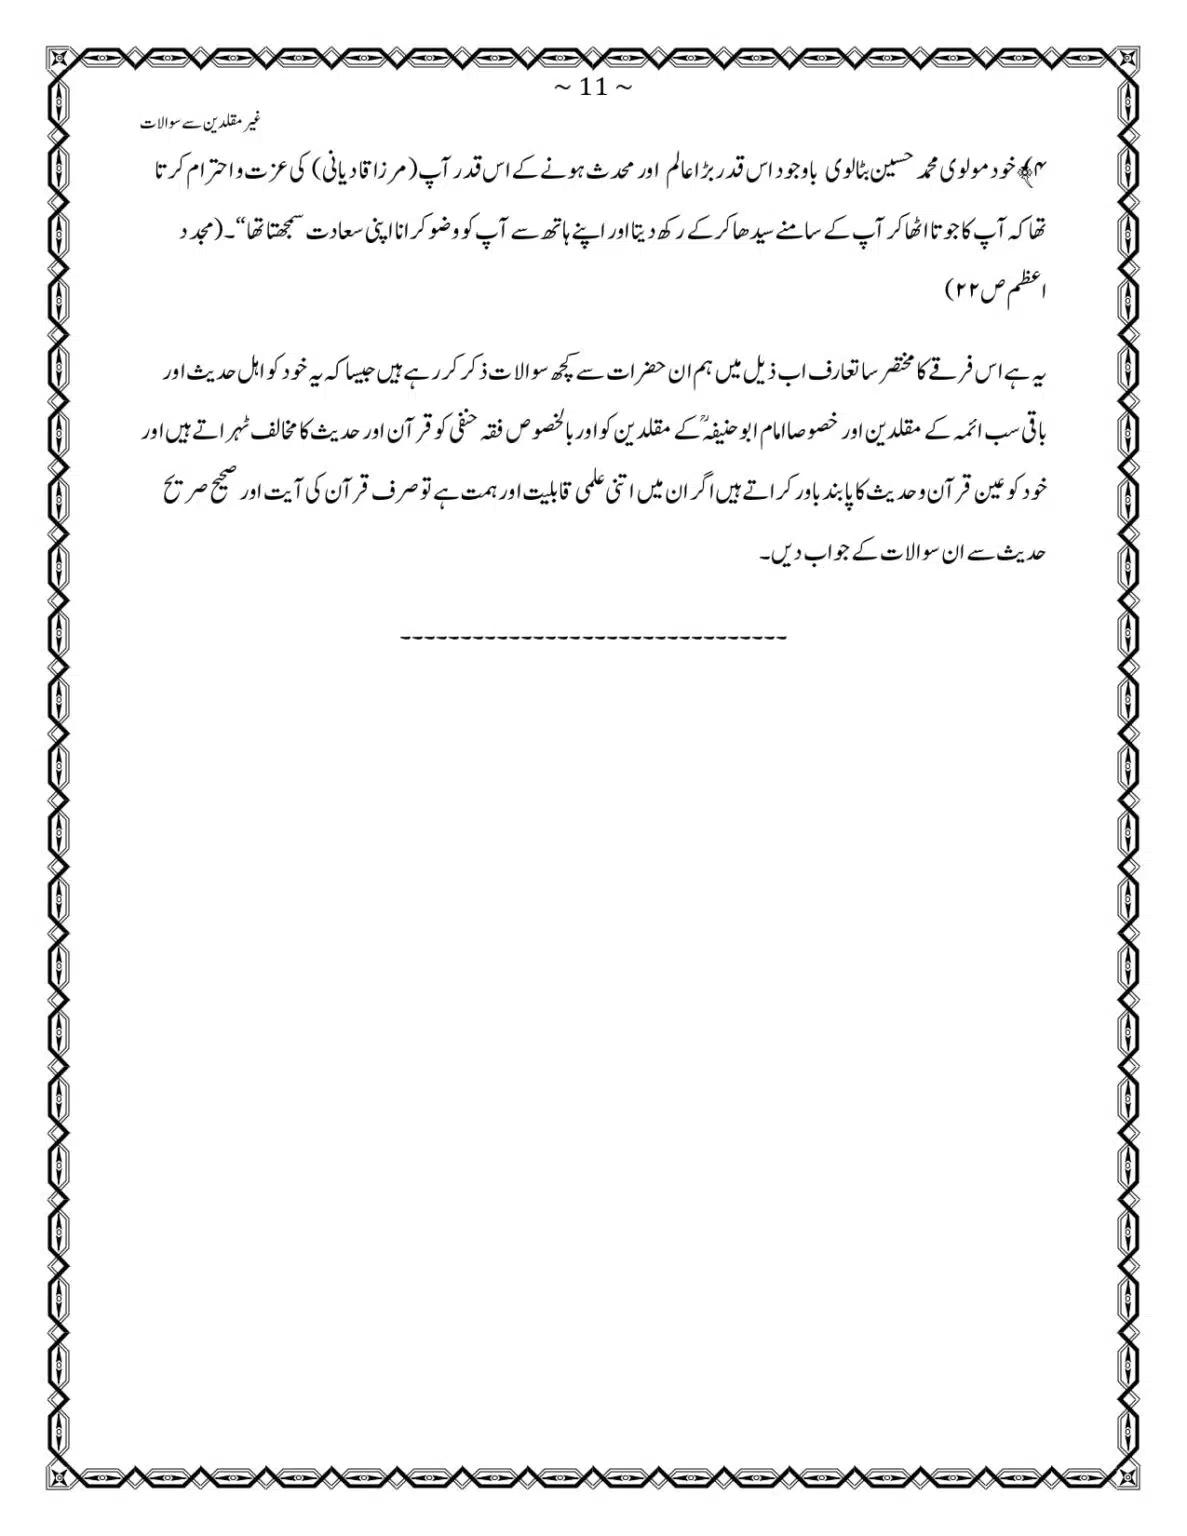 ~ 11 ~
غیر مقلدین سے سوالات
۴﴾خود مولوی محمد حسین بٹالوی باوجود اس قدر بڑا عالم اور محدث ہونے کے اس قدر آپ (مرزا قادیانی) کی عزت و احترام کرتا
تھا کہ آپ کا جوتا اٹھا کر آپ کے سامنے سیدھا کر کے رکھ دیتا اور اپنے ہاتھ سے آپ کو وضو کرانا اپنی سعادت سمجھتا تھا“۔(مجدد
اعظم ص ۲۲)
یہ ہے اس فرقے کا مختصر سا تعارف اب ذیل میں ہم ان حضرات سے کچھ سوالات ذکر کر رہے ہیں جیسا کہ یہ خود کو اہل حدیث اور
باقی سب ائمہ کے مقلدین اور خصوصا امام ابو حنیفہؒ کے مقلدین کو اور بالخصوص فقہ حنفی کو قرآن اور حدیث کا مخالف ٹہراتے ہیں اور
خود کو عین قرآن و حدیث کا پابند باور کراتے ہیں اگر ان میں اتنی علمی قابلیت اور ہمت ہے تو صرف قرآن کی آیت اور صحیح صریح
حدیث سے ان سوالات کے جواب دیں۔
--------------------------------